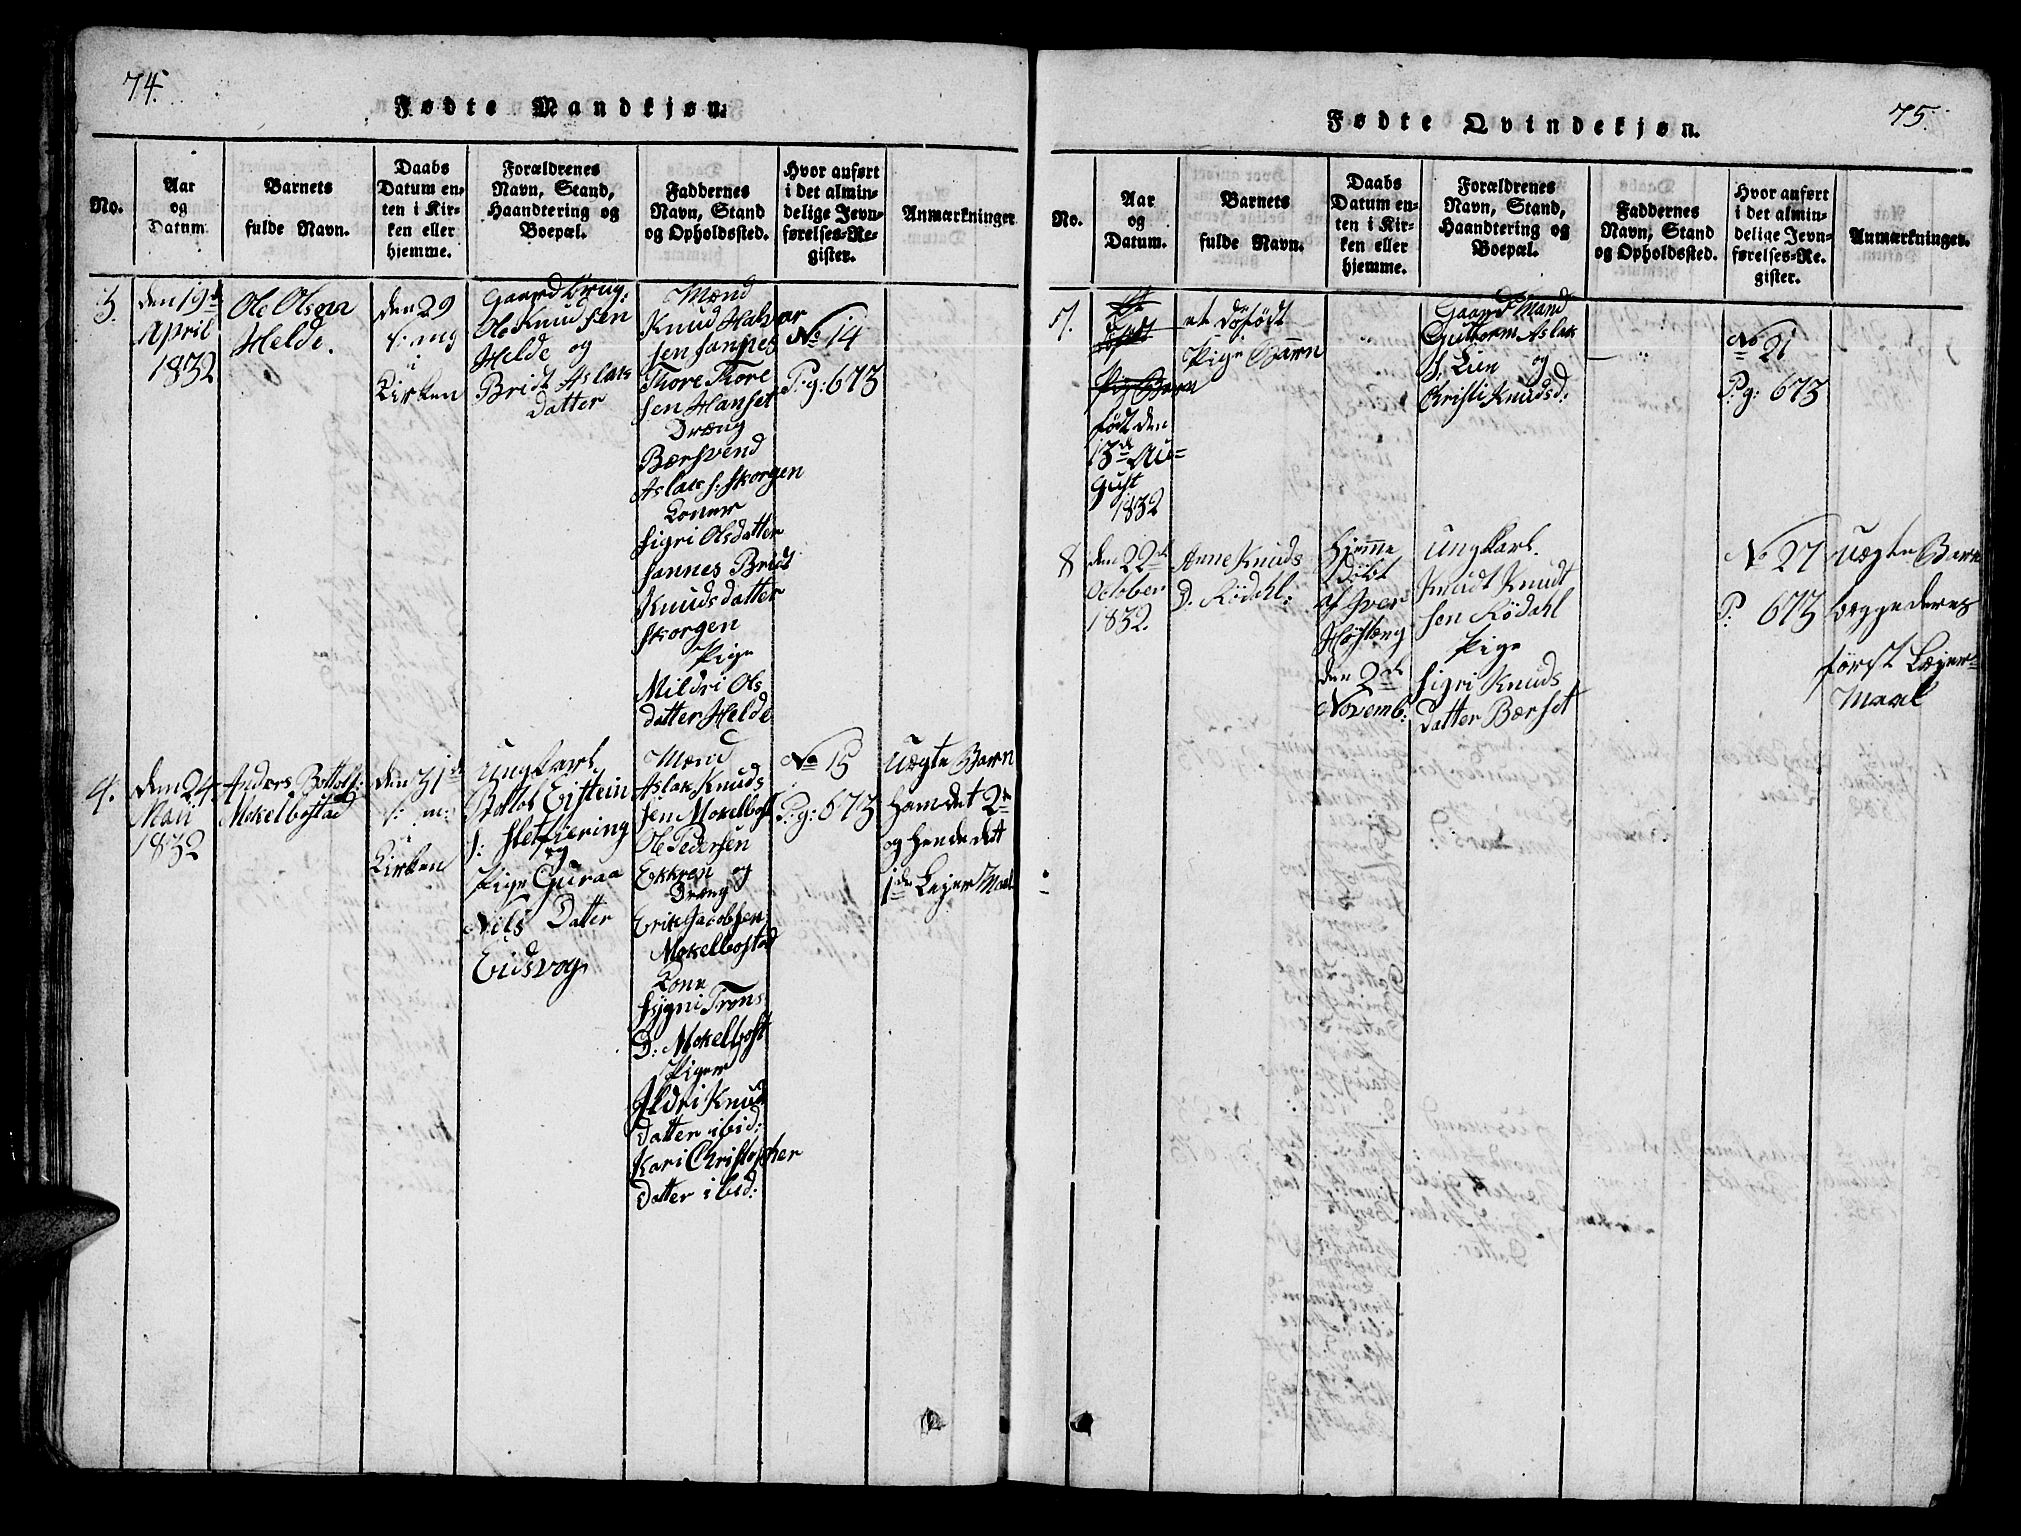 74.
Fødte Mandkjøn.
No.
Aar
og
Datum.
Barnets
fulde Navn.
Daabs
Datum en-
ten i Kir-
ken eller
hjemme.
Forældrenes
Navn, Stand,
Haandtering og
Boepæl.
Faddernes
Navn, Stand
og Opholdssted.
Hvor anført
i det almin-
delige Jevn-
førelses-Re-
gister.
Anmærkninger.
3.
den 19de
April
1832
Ole Olsen
Helde.
den 29
i
Kirken
Gaard brug:
Ole Knudsen
Helde og
Bridt Aslaks
datter
Mænd
Knud Halvor
sen Sannes
Thore Thore
sen Hanset
Dræng
Bærsvend
Aslaks: Skorgen
Koner
Sigri Olsdatter
Sannes Bridt
Knudsdatter
Skorgen
Pige
Mildri Ols
datter Helde
No 14
P:g: 673
4.
den 24.
Mai
1832
Anders Bottolf:
Mokelbostad
den 31te
i
Kirken
Ungkarl
Bottol Eistein
S: Sletfiering
og
Pige Guraa
Nils Datter
Eidsvog
Mænd
Aslak Knud
sen Mokelbost
Ole Pedersen
Ekkren og
Dræng
Erik Jacobsen
Mokelbostad
Kone
Sygni Trons
D: Mokelbost
Piger
Ildri Knud
datter ibid:
Kari Christopher
Datter ibid:
No 15
P:g: 673
Uægte Barn
ham det 2de
og hende det
1de Lejer Maal
75.
Fødte Qvindekjøn.
No.
Aar
og
Datum.
Barnets
fulde Navn.
Daabs
Datum en-
ten i Kir-
ken eller
hjemme.
Forældrenes
Navn, Stand,
Haandtering og
Boepæl.
Faddernes
Navn, Stand
og Opholdssted.
Hvor anført
i det almin-
delige Jevn-
førelses-Re-
gister.
Anmærkninger.
7.
et
dødfødt
Pige Barn
født den
13de Au=
gust
1832
et døfødt
Pige Barn
Gaard Mand
Guttorm Aslak
S. Lien og
Christi Knudsd:
No 21
P:g: 673
8
den 22de
October
1832.
Anne Knuds
D. Rödahl:
Hjemme
döbt
af Iver
Høstæng
den 2de
Novemb:
Ungkarl.
Knudt Knudt
sen Rödahl
Pige
Sigri Knuds
datter Bærset
No 27
P: 673
Uægte Barn
begge deres
först Lejer=
Maal